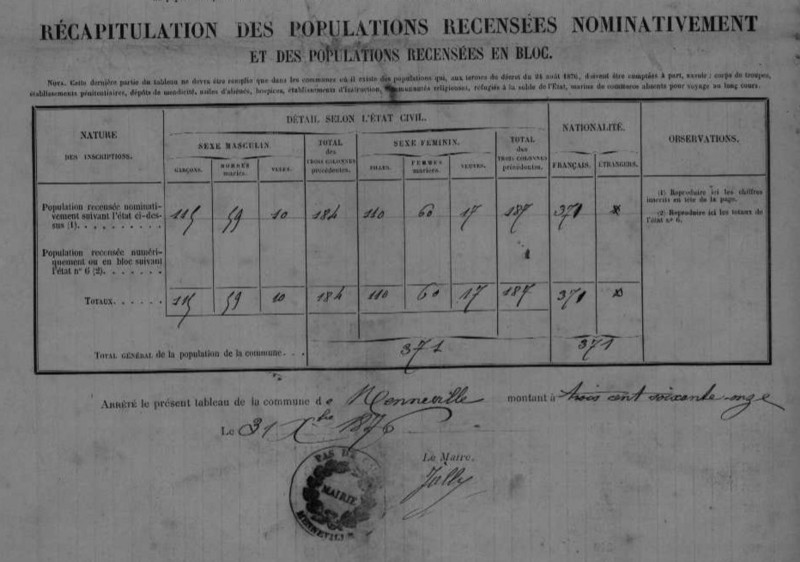 RÉCAPITULATION DES POPULATIONS RECENSÉES NOMINATIVEMENT
ET DES POPULATIONS RECENSÉES EN BLOC.
NOTA. Cette dernière partie du tableau ne devra être remplie que dans les communes où il existe des populations qui, aux termes du décret du 24 août 1876, doivent être comptées à part, savoir : corps de troupes,
établissements pénitentiaires, dépôts de mendicité, asiles d'aliénés, hospices, établissements d'instruction, communautés religieuses, réfugiés à la solde de l'État, marins du commerce absents pour voyage au long cours.
NATURE
DES INSCRIPTIONS.
DÉTAIL SELON L'ÉTAT CIVIL.
SEXE MASCULIN
GARÇONS.
HOMMES
mariés.
VEUFS.
TOTAL
des
TROIS COLONNES
précédentes.
SEXE FÉMININ.
FILLES.
FEMMES
mariées.
VEUVES.
TOTAL
des
TROIS COLONNES
précédentes.
NATIONALITÉ.
FRANÇAIS.
ÉTRANGERS.
OBSERVATIONS.
Population recensée nominati-
vement suivant l'état ci-des-
sus (1). . . . . . . . .
115 59 10 184 110 60 17 187 371 x
(1) Reproduire ici les chiffres
inscrits en tête de la page.
(2) Reproduire ici les totaux de
l'état n° 6.
Population recensée numéri-
quement ou en bloc suivant
l'état n° 6 (2). . . . . . .
TOTAUX. . . . . .
115 59 10 184 110 60 17 187 371 x
TOTAL GÉNÉRAL de la population de la commune. . .
371 371
ARRÊTÉ le présent tableau de la commune de Menneville montant à trois cent soixante-onze
Le 31 Xbre 1876
Le Maire,
Jolly
PAS DE
MAIRIE
MENNEVILLE